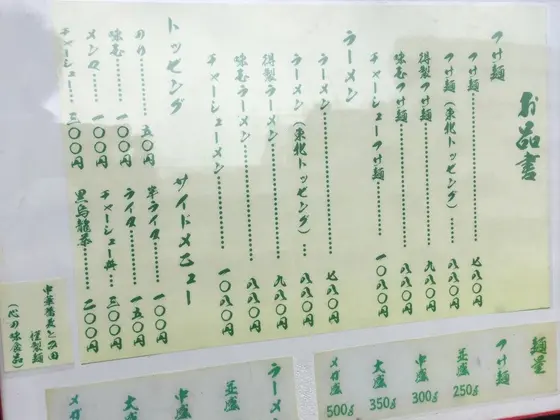 お品書
つけ麺
つけ麺……………七八〇円
つけ麺（東北トッピング）…八八〇円
得製つけ麺……………九八〇円
味玉つけ麺……………八八〇円
チャーシューつけ麺……一〇八〇円
ラーメン
ラーメン……………七八〇円
ラーメン（東北トッピング）…八八〇円
得製ラーメン……………九八〇円
味玉ラーメン……………八八〇円
チャーシューメン………一〇八〇円
トッピング
のり……………五〇円
味玉……………一〇〇円
メンマ……………一〇〇円
チャーシュー……三〇〇円
サイドメニュー
半ライス……………一〇〇円
ライス……………一五〇円
チャーシュー丼……三〇〇円
黒烏龍茶……………二〇〇円
中華蕎麦とみ田
謹製麺
（心の味食品）
麺量
つけ麺
並盛 250g
中盛 300g
大盛 350g
メガ盛 500g
ラーメン
並盛
中盛
大盛
メガ